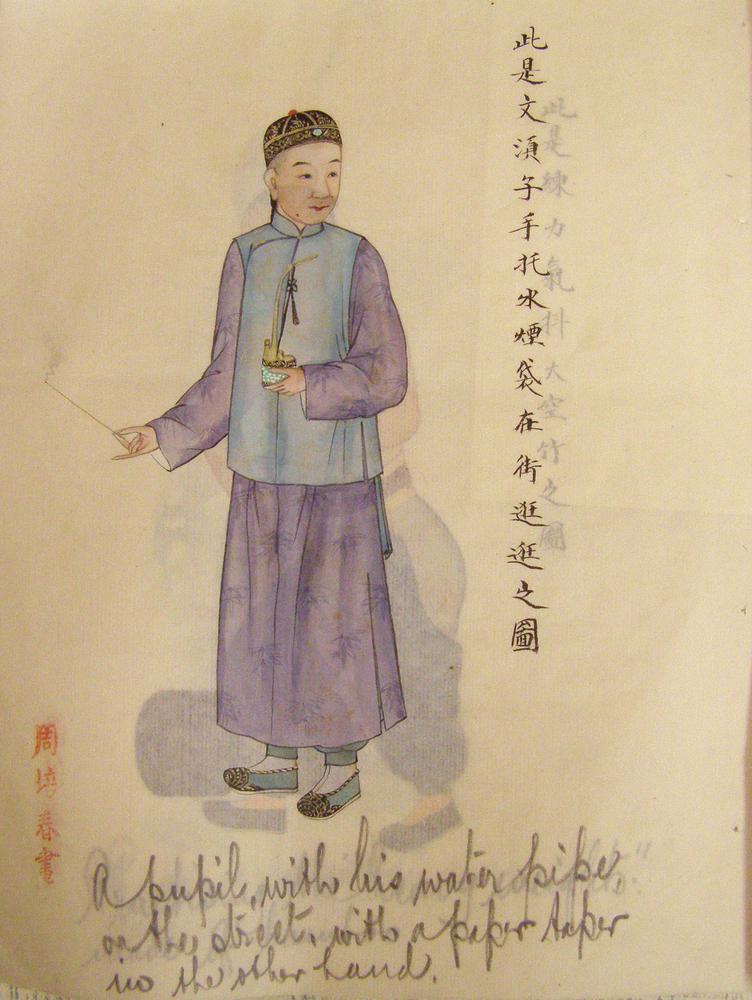 此是文湏子手托水煙袋在街逛逛之圖
此是練力氣抖大空竹之圖
周培春畫
A pupil, with his water pipe
on the street, with a paper taper
in the other hand.